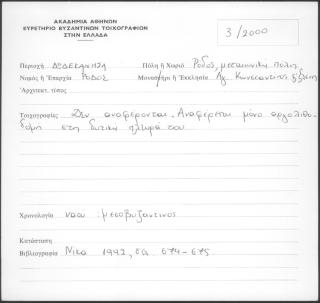 ΑΚΑΔΗΜΙΑ ΑΘΗΝΩΝ
ΕΥΡΕΤΗΡΙΟ ΒΥΖΑΝΤΙΝΩΝ ΤΟΙΧΟΓΡΑΦΙΩΝ
ΣΤΗΝ ΕΛΛΑΔΑ
3/2000
Περιοχή ΔΩΔΕΚΑΝΗΣΑ Πόλη ή Χωριό Ρόδος, μεσαιωνική πόλη
Νομός ή Επαρχία ΡΟΔΟΣ Μοναστήρι ή Ἐκκλησία Αγ. Κωνσταντίνος
Ἀρχιτεκτ. τύπος
Τοιχογραφίες Δεν αναφέρονται. Αναφέρεται μόνο αργολιθο-
δομή στη δυτική πλευρά του
Χρονολογία ναου: μεσοβυζαντινος
Κατάσταση
Βιβλιογραφία Νικα 1992, σσ 674-675